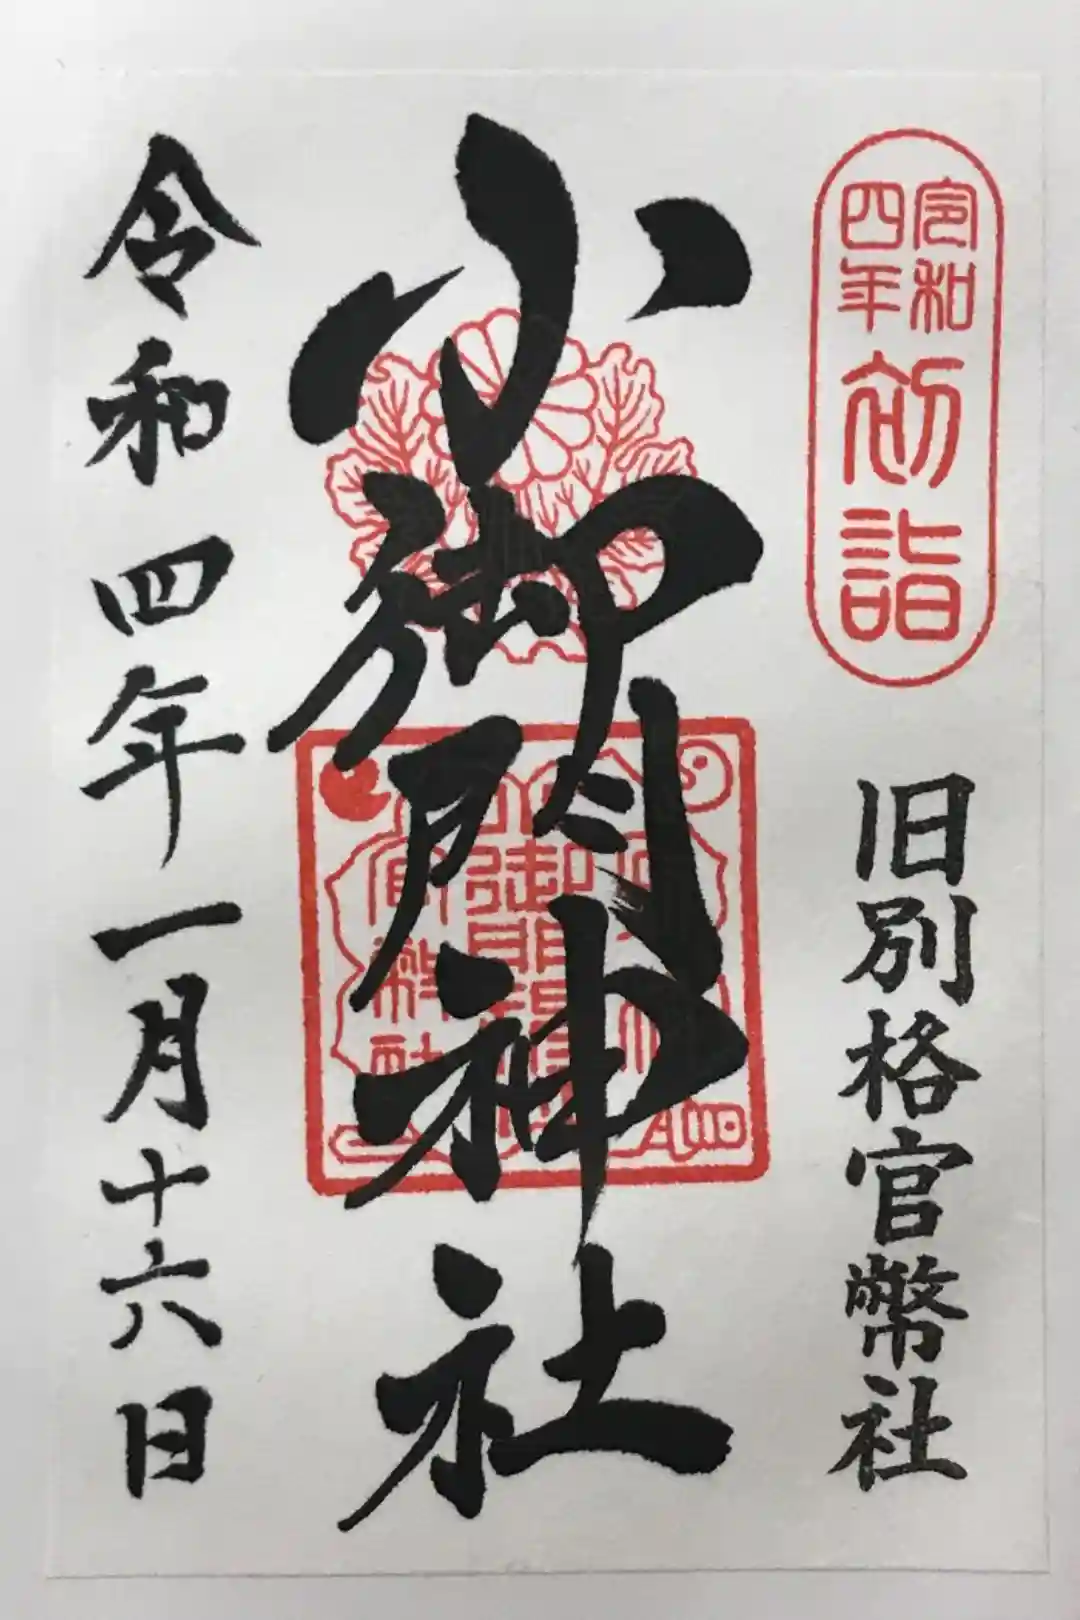 令和四年
初詣
旧別格官幣社
小御門神社
令和四年一月十六日